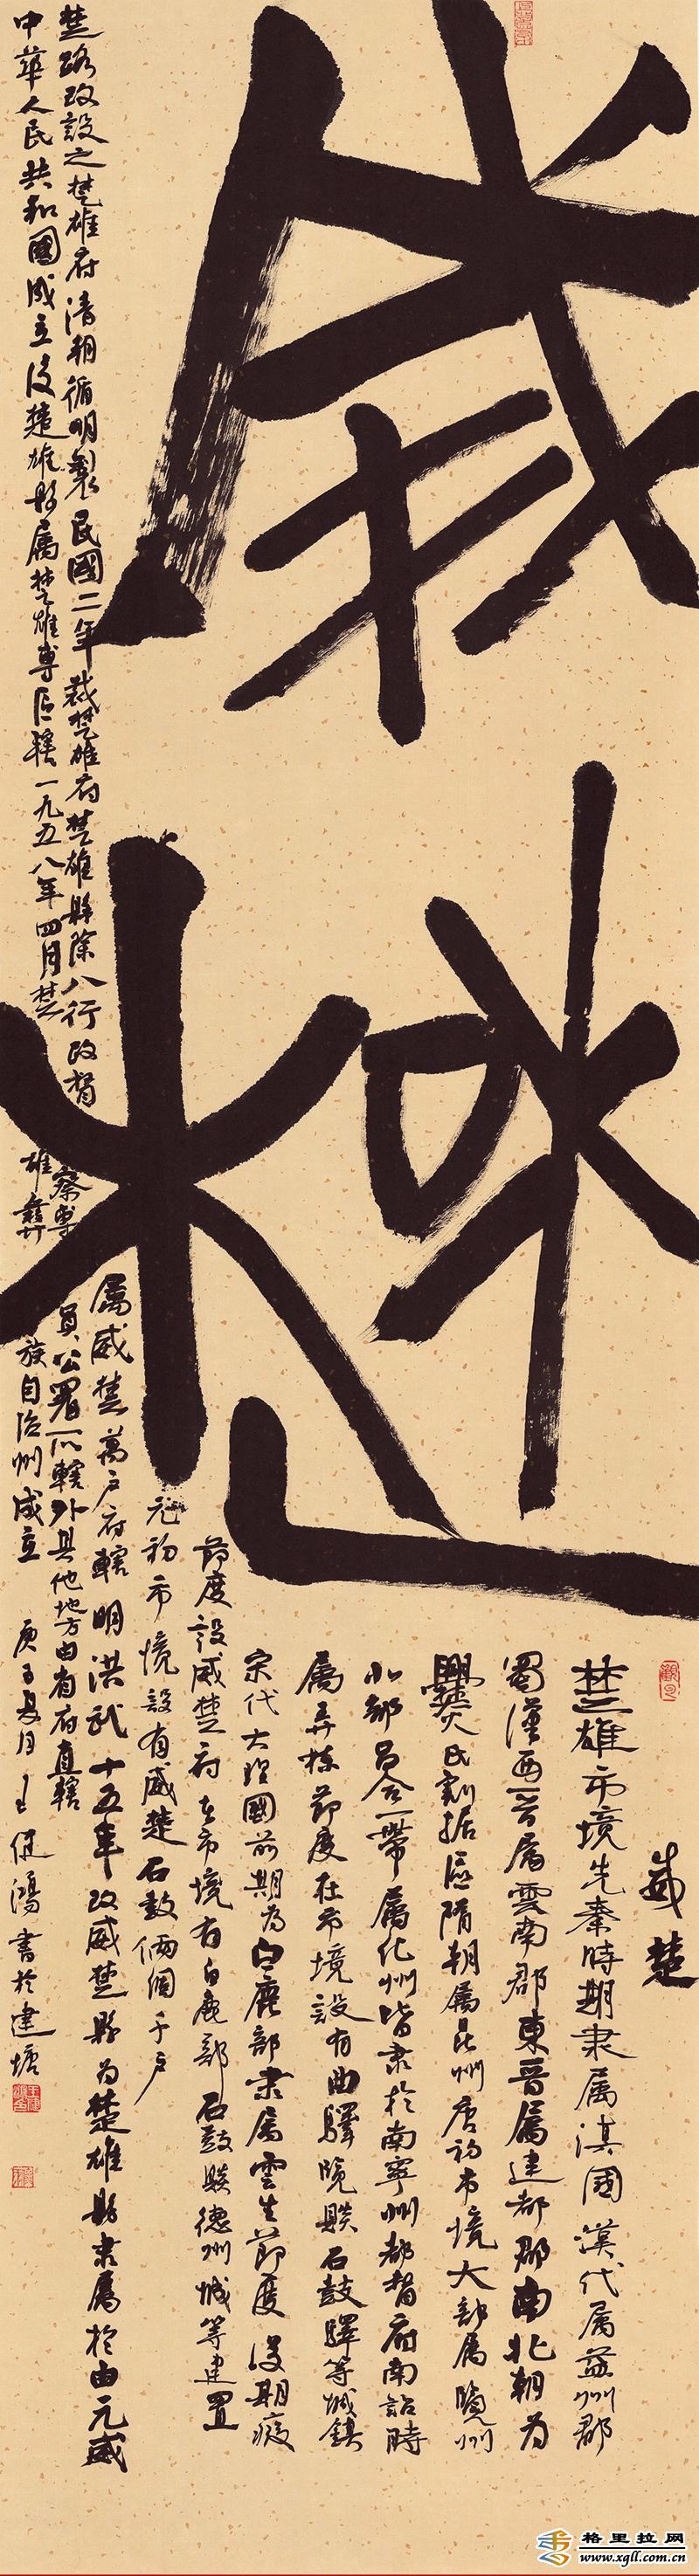 威楚
威楚
楚雄市境先秦時期隶属滇國漢代属益州郡
蜀漢西晋属雲南郡東晋属建都郡南北朝为
爨氏割据區隋朝属昆州唐初市境大部属览州
北部吕合一带属化州皆隶於南寧州都督府南詔時
属弄栋節度在市境設有曲驛览賧石鼓驛等城鎮
宋代大理國前期为白鹿部隶属雲生節度後期廢
節度設威楚府在市境有白鹿部石鼓賧德州城等建置
元初市境設有威楚石鼓俩個千户
属威楚萬户府轄明洪武十五年改威楚县为楚雄县隶属於由元威
楚路改設之楚雄府清朝循明製民國二年裁楚雄府楚雄县除八行政督察專員公署所轄外其他地方由省府直轄
中華人民共和國成立後楚雄县属楚雄專區轄一九五八年四月楚雄彝族自治州成立
庚子夏月王健鴻書於建塘
格里拉网
www.xgll.com.cn